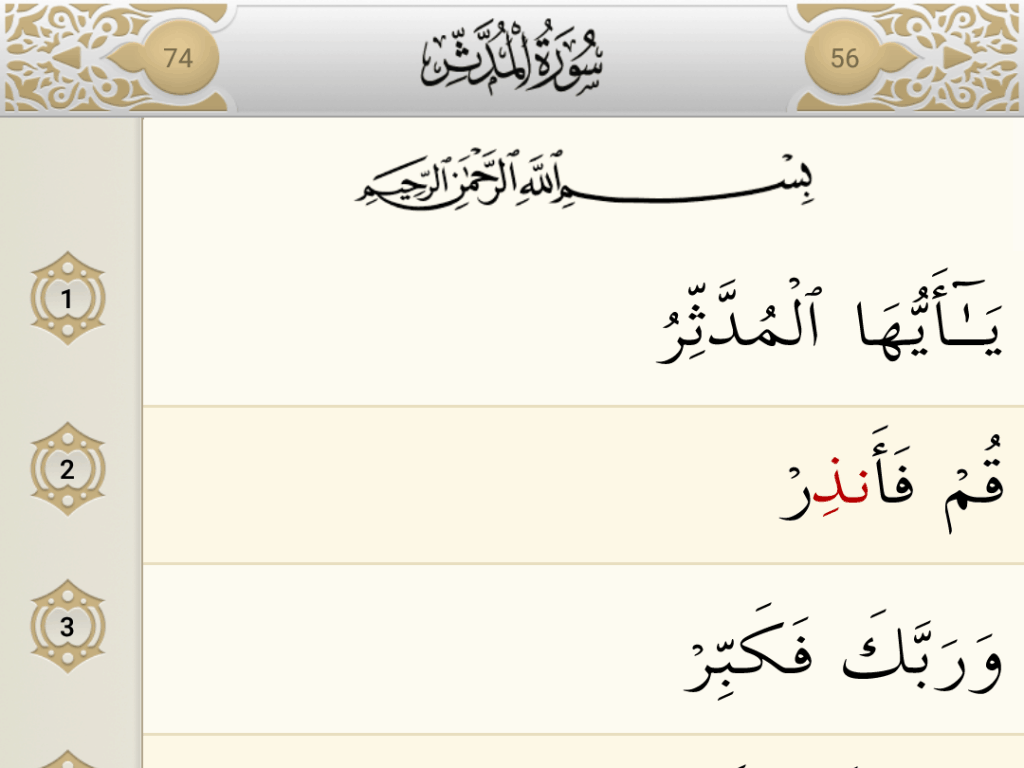 74 سُورَةُ الْمُدَّثِّرِ 56
بِسْمِ ٱللَّهِ ٱلرَّحْمَٰنِ ٱلرَّحِيمِ
1 يَـٰٓأَيُّهَا ٱلْمُدَّثِّرُ
2 قُمْ فَأَنذِرْ
3 وَرَبَّكَ فَكَبِّرْ